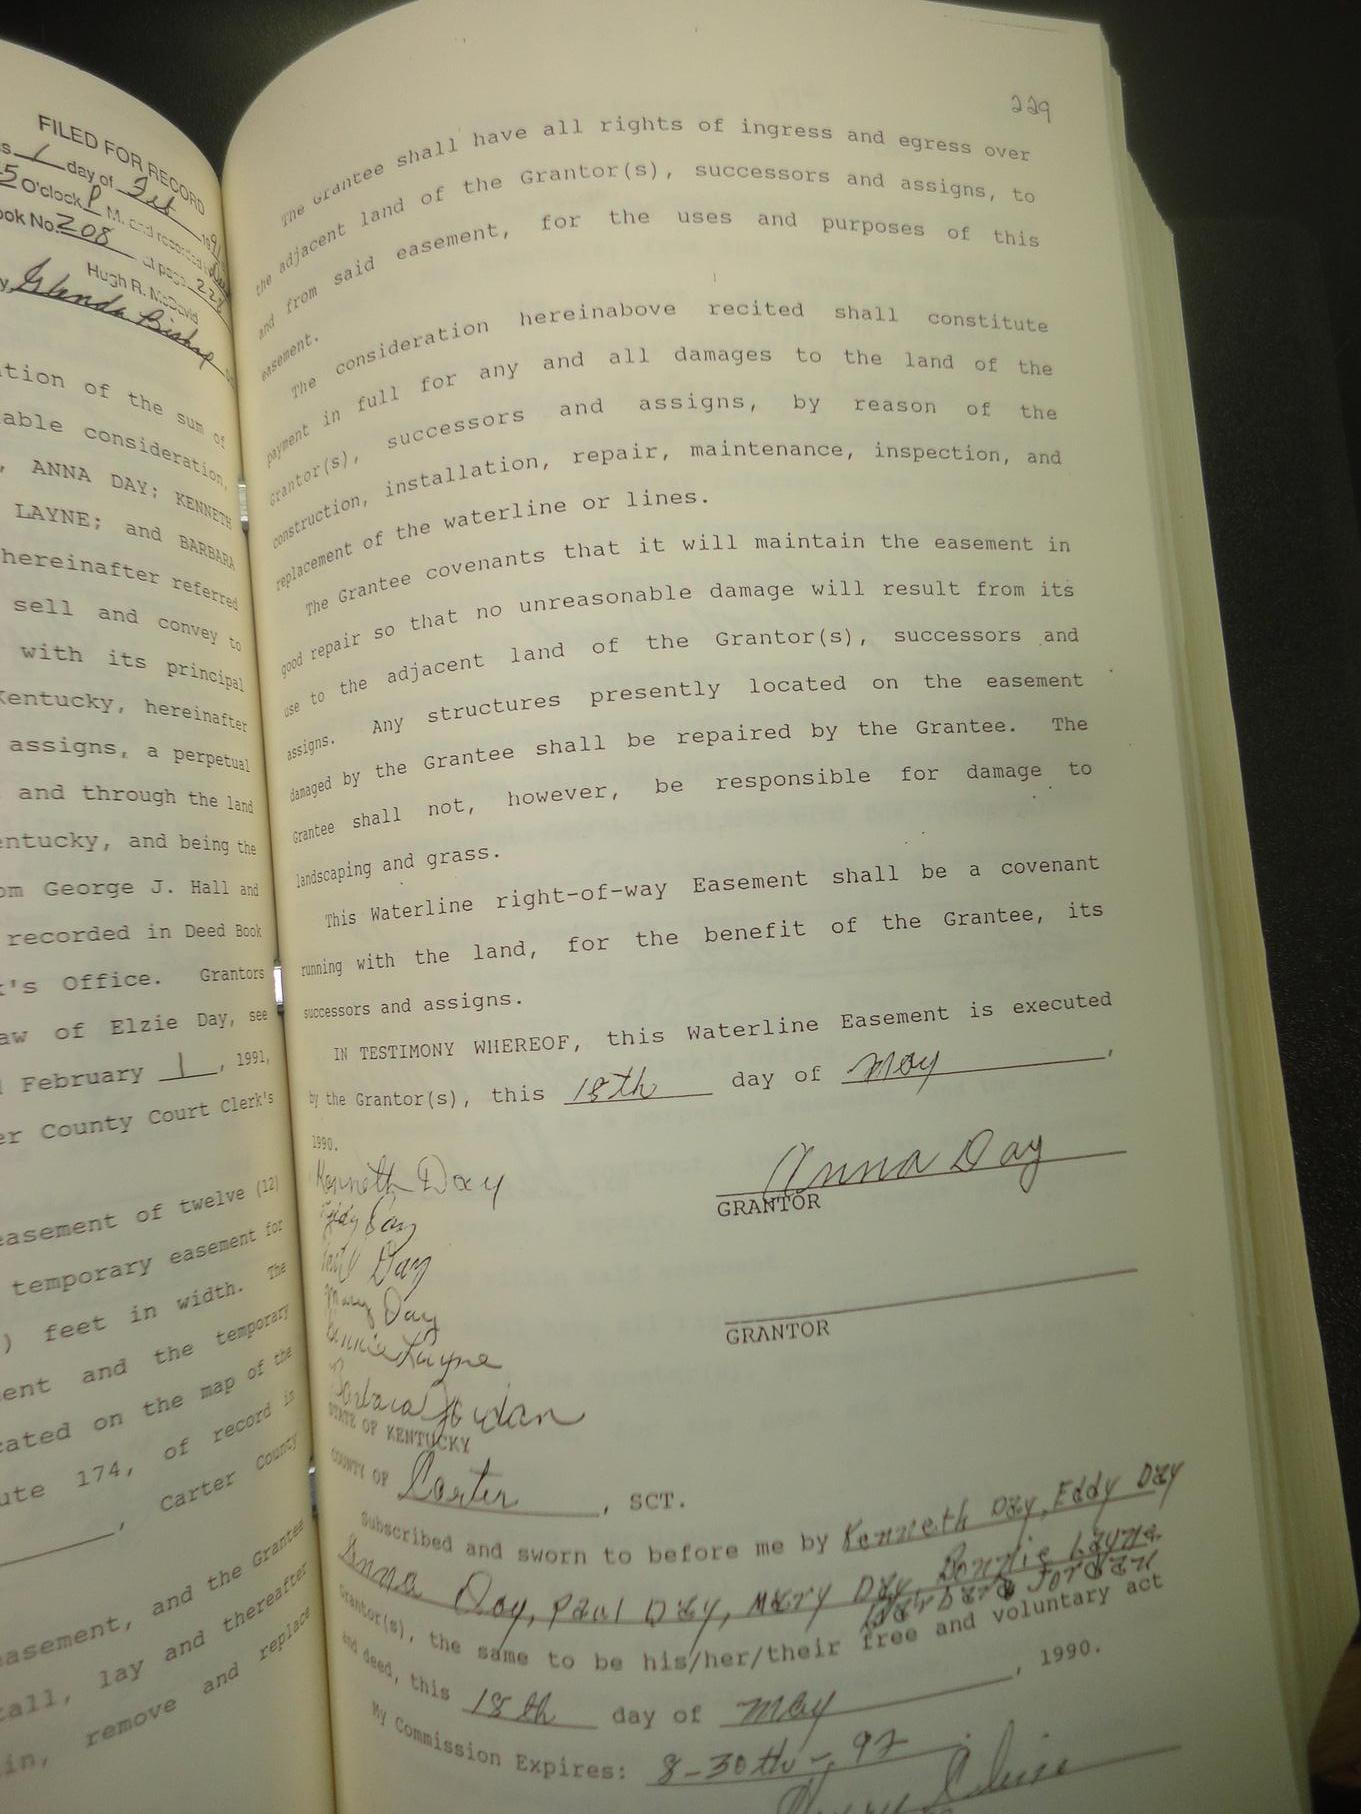 FILED FOR RECORD
day of Feb
O'clock P. M. and recorded
ook No. 208 at page 228
Hugh R. McDavid
Glenda Bishop
ation of the sum of
able consideration,
, ANNA DAY; KENNETH
LAYNE; and BARBARA
hereinafter referred
sell and convey to
with its principal
Kentucky, hereinafter
assigns, a perpetual
and through the land
entucky, and being the
om George J. Hall and
recorded in Deed Book
k's Office. Grantors
aw of Elzie Day, see
February 1, 1991,
er County Court Clerk's
easement of twelve (12)
temporary easement for
) feet in width. The
ent and the temporary
cated on the map of the
ute 174, of record in
, Carter County
easement, and the Grantee
tall, lay and thereafter
in, remove and replace
229
The Grantee shall have all rights of ingress and egress over
the adjacent land of the Grantor(s), successors and assigns, to
and from said easement, for the uses and purposes of this
easement.
The consideration hereinabove recited shall constitute
payment in full for any and all damages to the land of the
Grantor(s), successors and assigns, by reason of the
construction, installation, repair, maintenance, inspection, and
replacement of the waterline or lines.
The Grantee covenants that it will maintain the easement in
good repair so that no unreasonable damage will result from its
use to the adjacent land of the Grantor(s), successors and
assigns. Any structures presently located on the easement
damaged by the Grantee shall be repaired by the Grantee. The
Grantee shall not, however, be responsible for damage to
landscaping and grass.
This Waterline right-of-way Easement shall be a covenant
running with the land, for the benefit of the Grantee, its
successors and assigns.
IN TESTIMONY WHEREOF, this Waterline Easement is executed
by the Grantor(s), this 18th day of May,
1990.
Kenneth Day
Anna Day
GRANTOR
Eddy Day
Paul Day
Mary Day
Bonnie Layne
GRANTOR
Barbara Jordan
STATE OF KENTUCKY
COUNTY OF Carter, SCT.
Subscribed and sworn to before me by Kenneth Day, Eddy Day
Anna Day, Paul Day, Mary Day, Bonnie Layne
Barbara Jordan
Grantor(s), the same to be his/her/their free and voluntary act
and deed, this 18th day of May, 1990.
My Commission Expires: 8-30th-, 92